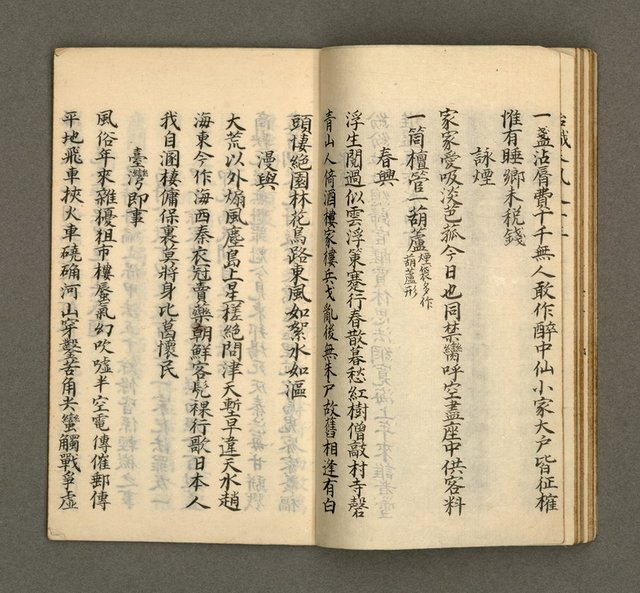 一盞沾脣費十千無人敢作醉中仙小家大戶皆征榷
惟有睡鄉未稅錢
詠煙
家家愛吸淡巴菰今日也同禁臠呼空盡座中供客料
一筒檀管一葫蘆煙袋多作葫蘆形
春興
浮生閱過似雲浮策蹇行春散暮愁紅樹僧敲村寺磬
青山人倚酒樓家樓兵戈亂後無朱戶故舊相逢有白
頭悽絕園林花鳥路東風如絮水如漚
漫興
大荒以外煽風塵島上星槎絕問津天塹早違天水趙
海東今作海西秦衣冠賣藥朝鮮客髡裸行歌日本人
我自溷棲傭保裏莫將身比葛懷民
臺灣即事
風俗年來雜獶狙市樓蜃氣幻吹噓半空電傳催郵傳
平地飛車挾火車磽确河山穿鑿苦角夫蠻觸戰爭虛